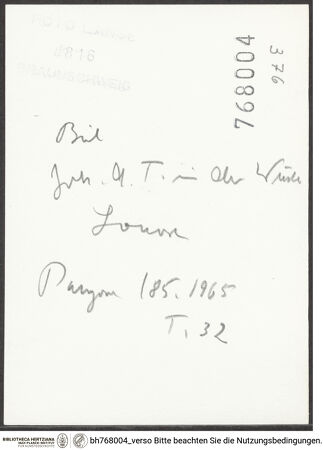 FOTO
4816
BRAUNSCHWEIG
768004
376
Bril
Joh. d. T. in der Wüste
Louvre
Paragone 185, 1965
T. 32
BIBLIOTHECA HERTZIANA
MAX-PLANCK-INSTITUT
FÜR KUNSTGESCHICHTE
bh768004_verso Bitte beachten Sie die Nutzungsbedingungen.